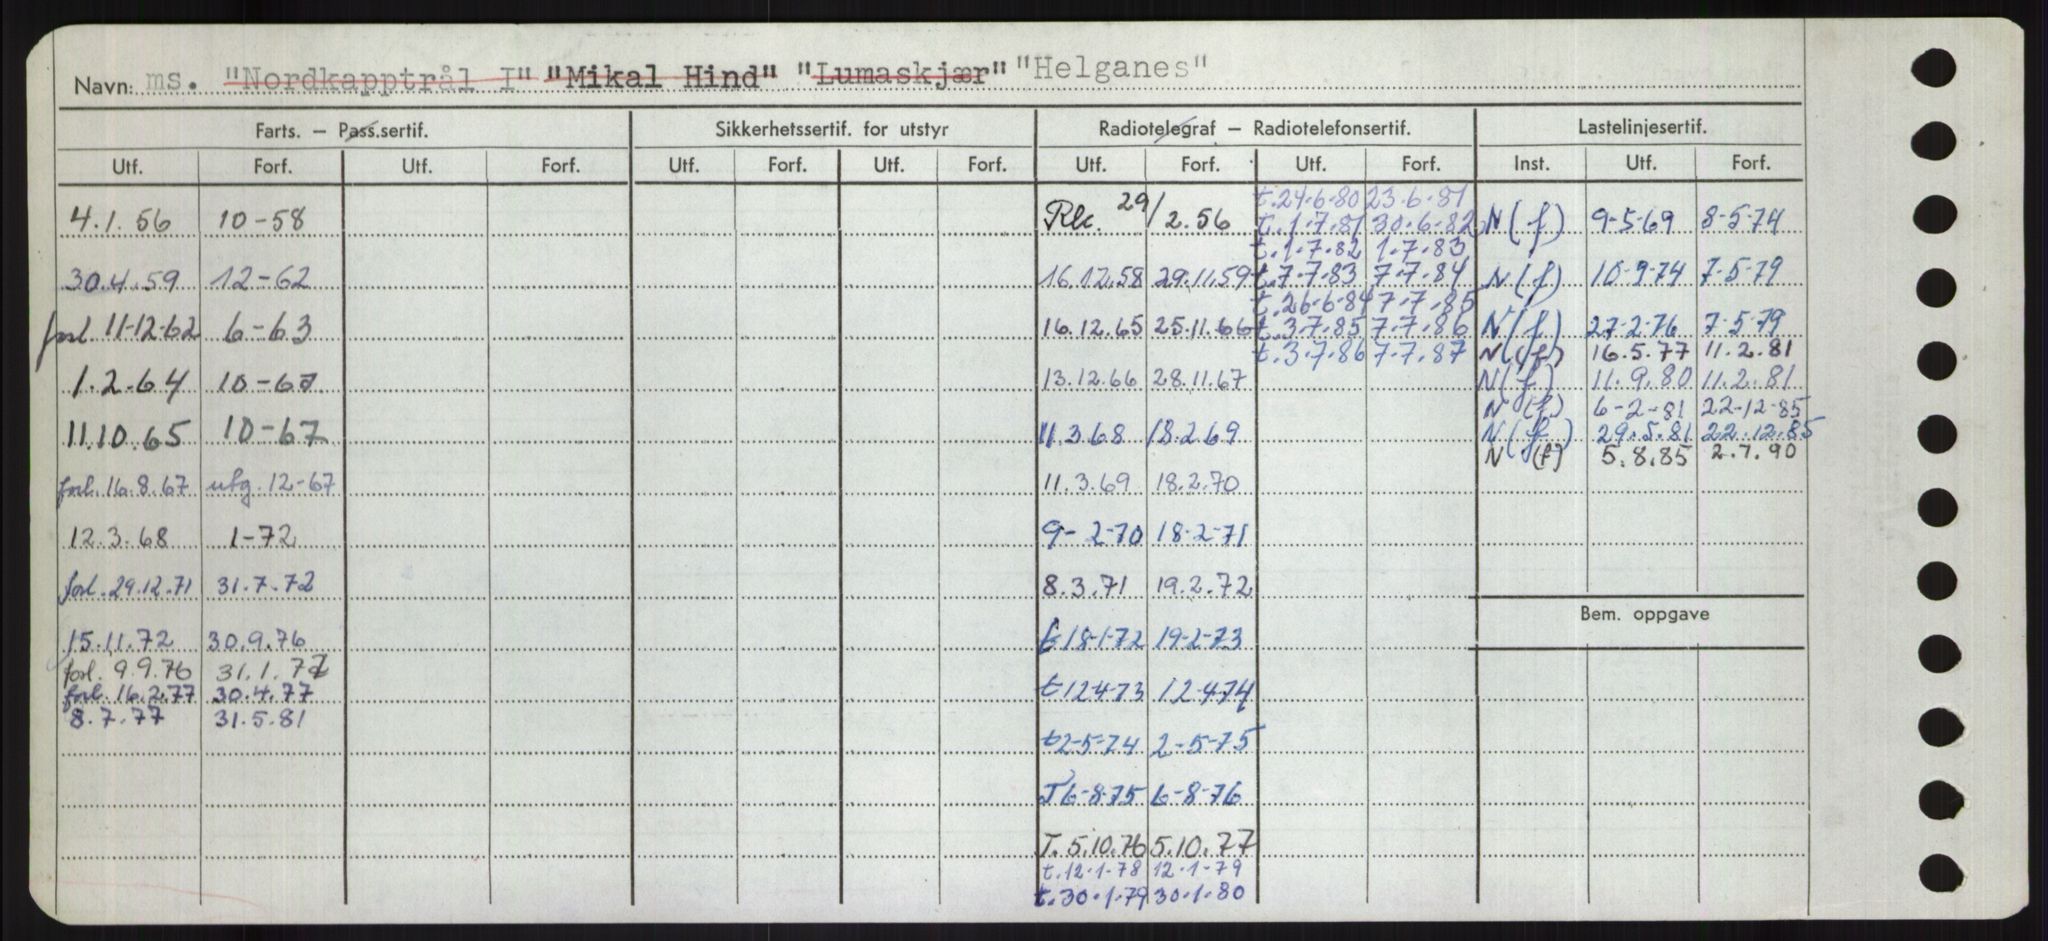 Navn: ms. "Nordkapptrål I" "Mikal Hind" "Lumaskjær" "Helganes"
Farts. – Pass.sertif. Sikkerhetssertif. for utstyr Radiotelegraf – Radiotelefonsertif. Lastelinjesertif.
Utf. Forf. Utf. Forf. Utf. Forf. Utf. Forf. Utf. Forf. Utf. Forf. Inst. Utf. Forf.
4.1.56 10-58
30.4.59 12-62
forl 11-12-62 6-63
1.2.64 10-67
11.10.65 10-67
forl. 16.8.67 utg. 12-67
12.3.68 1-72
forl. 29.12.71 31.7.72
15.11.72 30.9.76
forl. 9.9.76 31.1.77
forl. 16.2.77 30.4.77
8.7.77 31.5.81
29/2.56
16.12.58 29.11.59
16.12.65 25.11.66
13.12.66 28.11.67
11.3.68 18.2.69
11.3.69 18.2.70
9-2-70 18-2-71
8.3.71 19.2.72
t 18-1-72 19-2-73
t 12-4-73 12-4-74
t 2-5-74 2-5-75
T 6-8-75 6-8-76
T. 5.10.76 5.10.77
t. 12-1-78 12-1-79
t. 30.1.79 30.1.80
t. 24-6-80 23.6.81
t. 1.7.81 30.6.82
t. 1.7.82 1.7.83
t. 7.7.83 7.7.84
t. 26-6-84 7.7.85
t. 3.7.85 7.7.86
t. 3.7.86 7.7.87
N(f) 9-5-69 8-5-74
N(f) 10-9-74 7-5-79
N(f) 27-2-76 7-5-79
N(f) 16.5.77 11.2.81
N(f) 11.9.80 11.2.81
N(f) 6-2-81 22-12-85
N(f) 29.5.81 22.12.85
N (f) 5.8.85 2.7.90
Bem. oppgave